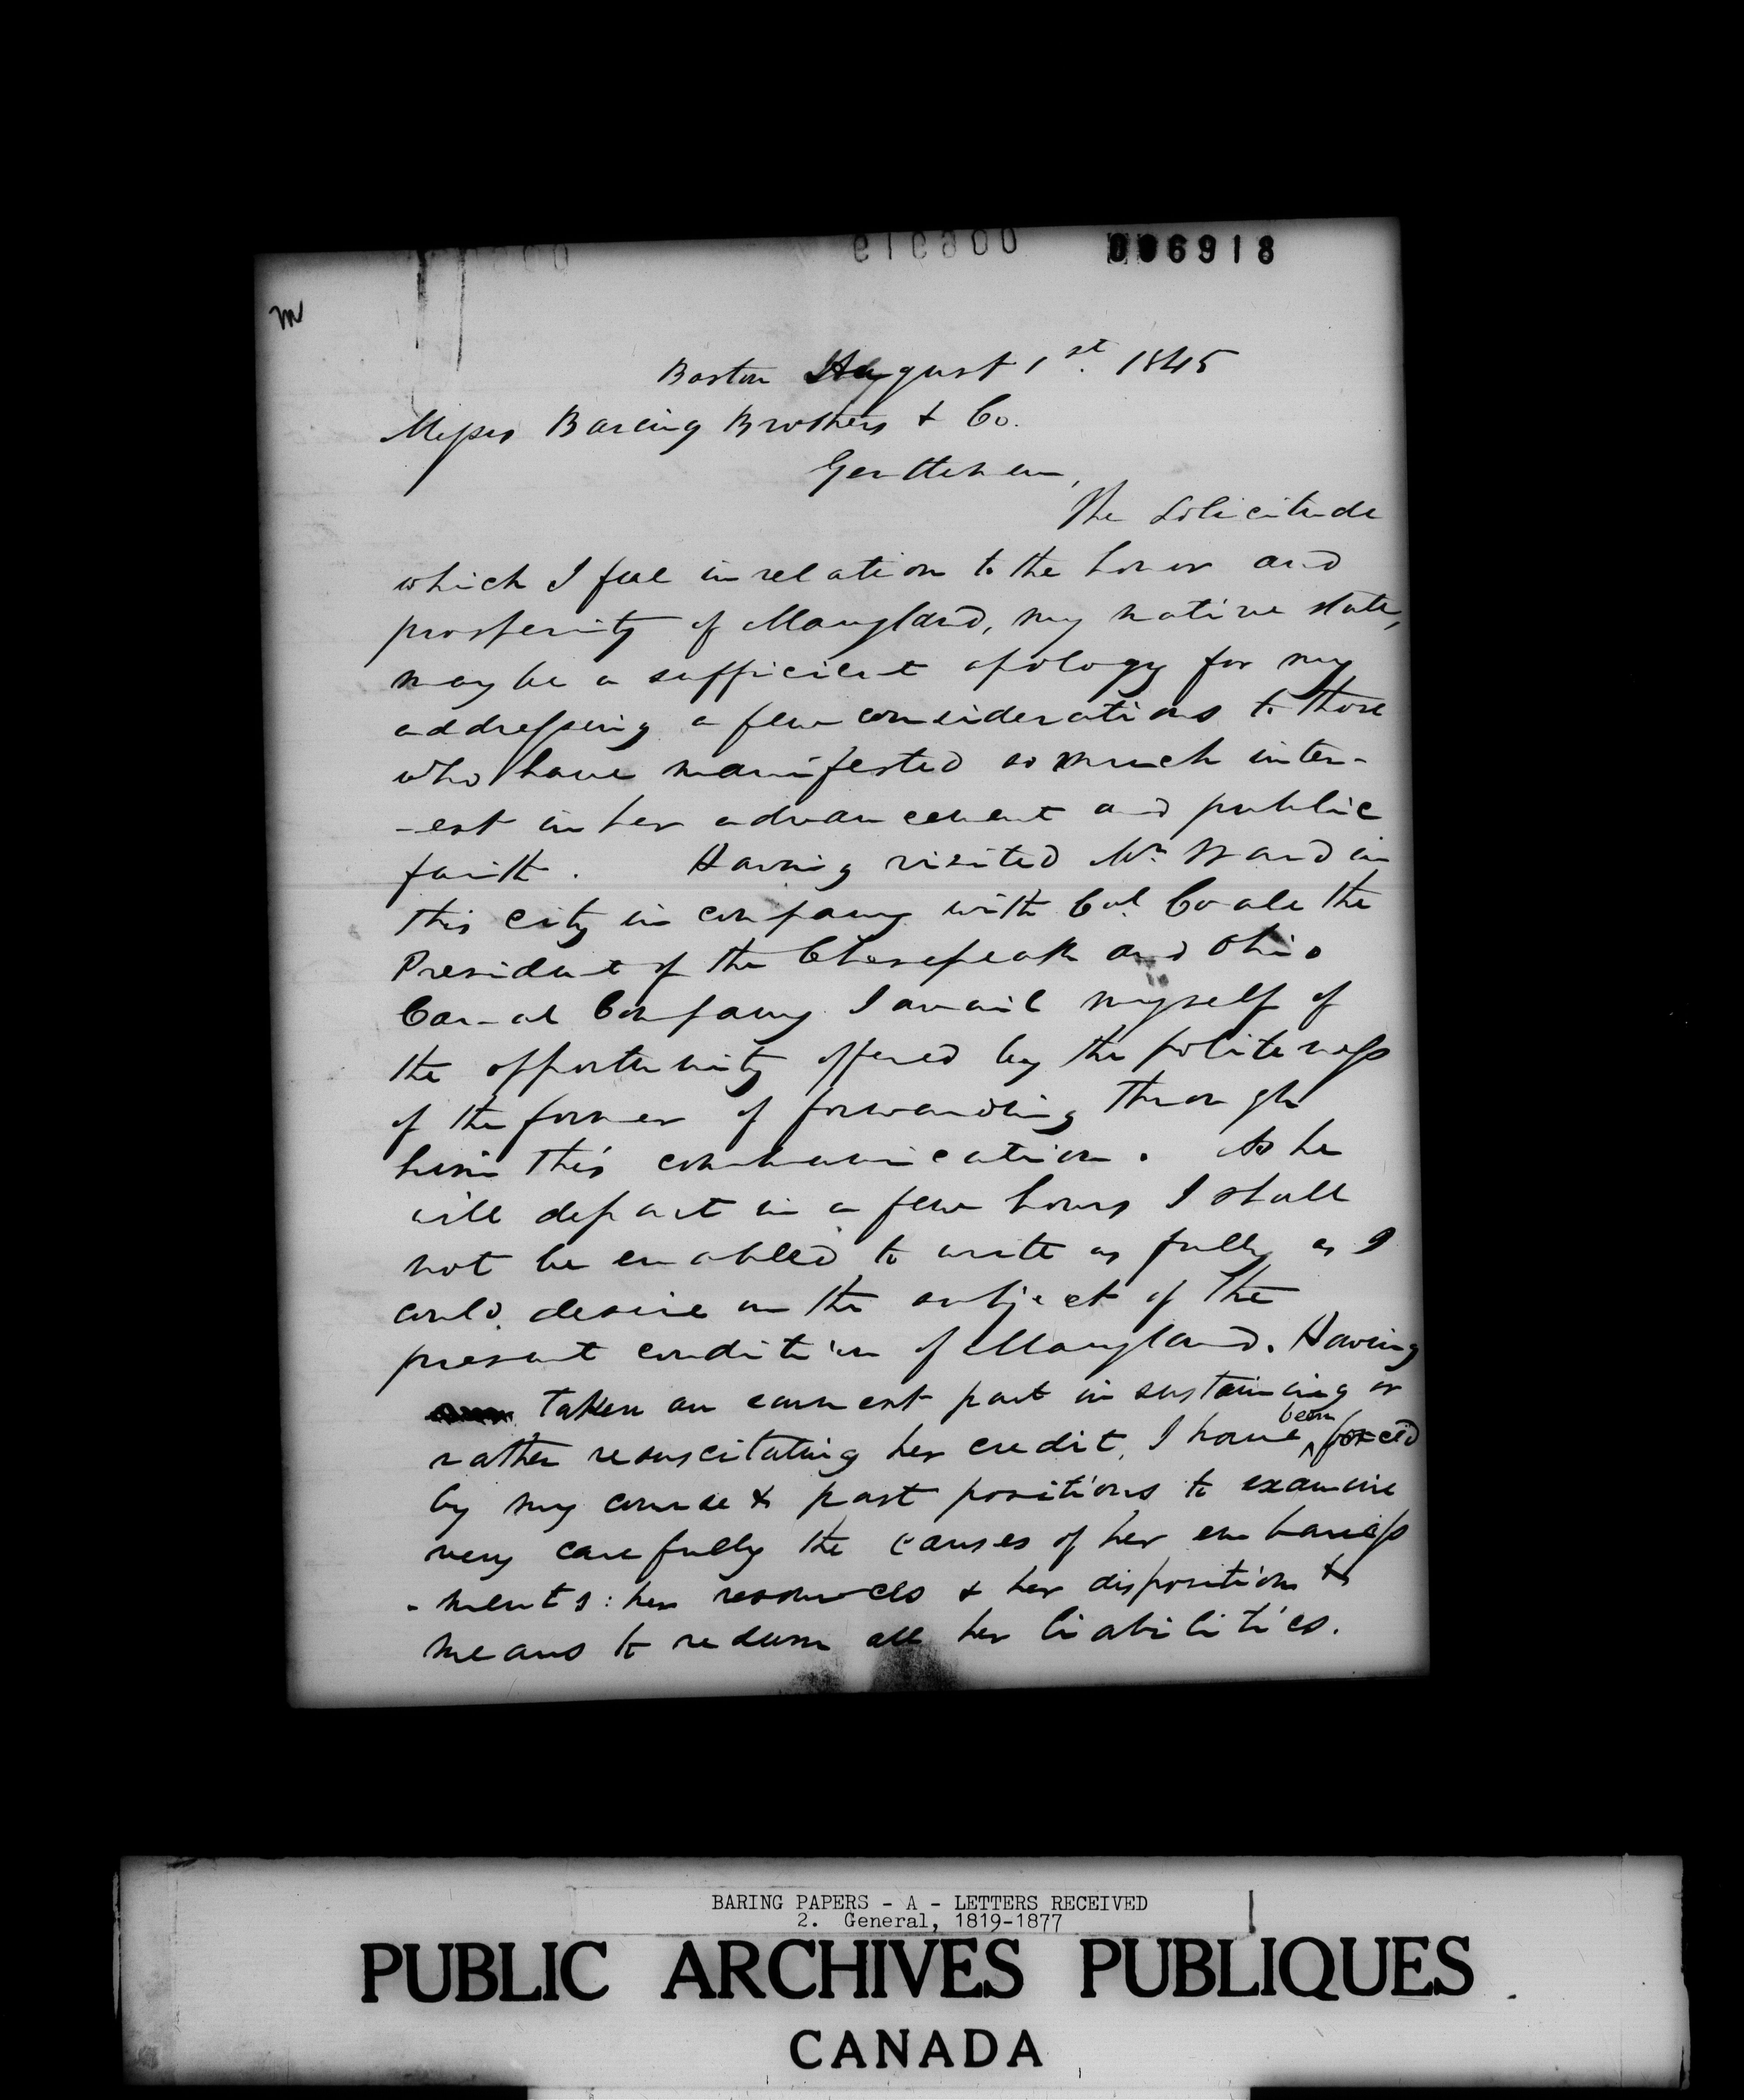 006918
m
Boston August 1st. 1845
Messrs Baring Brothers & Co.
Gentlemen,
The solicitude
which I feel in relation to the honor and
prosperity of Maryland, my native state,
may be a sufficient apology for my
addressing a few considerations to those
who have manifested so much inter-
-est in her advancement and public
faith. Having visited Mr. Ward in
this city in company with Col. Coale the
President of the Chesepeak and Ohio
Canal Company I avail myself of
the opportunity offered by the politeness
of the former of forwarding through
him this communication. As he
will depart in a few hours I shall
not be enabled to write as fully as I
could desire on the subject of the
present condition of Maryland. Having
taken an earnest part in sustaining or
rather resuscitating her credit, I have been forced
by my course & past positions to examine
very carefully the causes of her embarrass
-ments: her resources & her disposition &
means to redeem all her liabilities.
BARING PAPERS - A - LETTERS RECEIVED
2. General, 1819-1877
PUBLIC ARCHIVES PUBLIQUES
CANADA